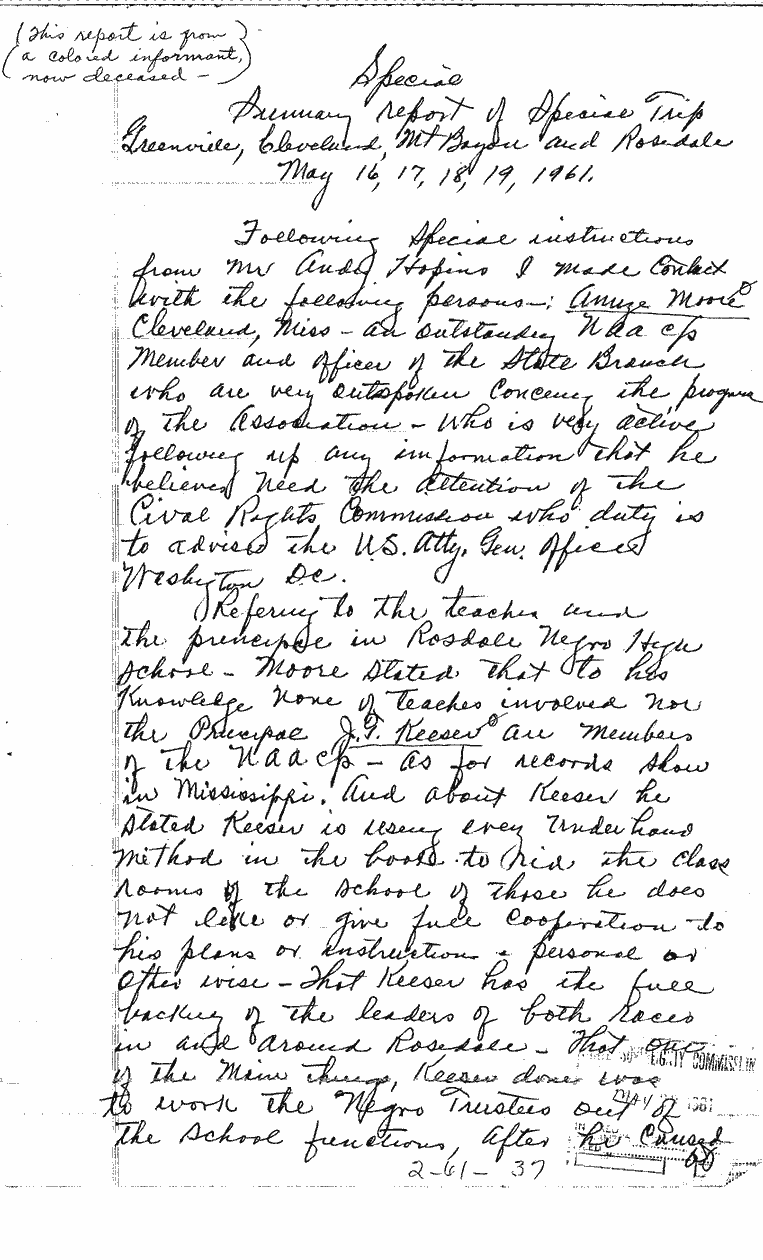 (This report is from
a colored informant,
now deceased -)
Special
Summary report of Special Trip
Greenville, Cleveland, Mt Bayou and Rosedale
May 16, 17, 18, 19, 1961.
Following Special instructions
from Mr Andy Hopins I made Contact
with the following persons -: Amzie Moore
Cleveland, Miss - an outstanding NAACP
Member and officer of the State Branch
who are very outspoken Concerng the program
of the Association - Who is very active
following up any information that he
believes need the attention of the
Cival Rights Commission who duty is
to advise the U.S. Atty. Gen. Office
Washington D.C.
Refering to the teaches and
the principle in Rosdale Negro High
School - Moore Stated that to his
Knowledge none of teaches involved nor
the Principal J.T. Keeser are members
of the NAACP - as for records show
in Mississippi. And about Keeser he
Stated Keeser is useng every Underhand
method in the book to rid the class
rooms of the School of those he does
not like or give full cooperation to
his plans or instruction - personal or
other wise - That Keeser has the full
backing of the leaders of both races
in and around Rosedale - That one
of the Main things, Keeser done was
to work the Negro Trustees out of
the School functions, After he Caused
2-61- 37
COMMISSION
MAY 1961